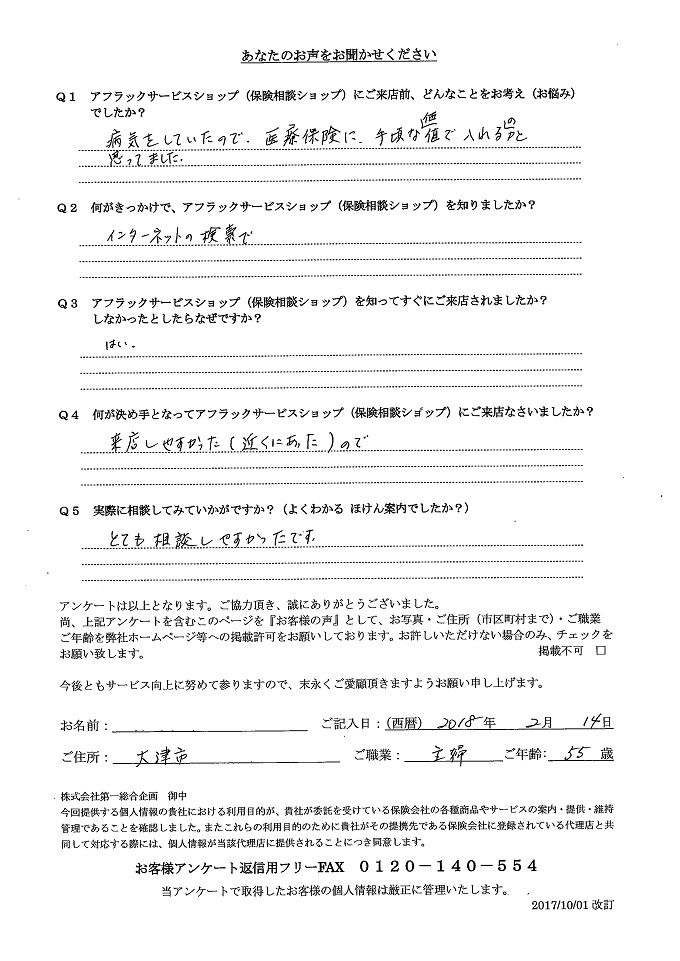 あなたのお声をお聞かせください
Q1 アフラックサービスショップ（保険相談ショップ）にご来店前、どんなことをお考え（お悩み）
でしたか？
病気をしていたので、医療保険に、手頃な値で入れると
思ってました。
Q2 何がきっかけで、アフラックサービスショップ（保険相談ショップ）を知りましたか？
インターネットの検索で
Q3 アフラックサービスショップ（保険相談ショップ）を知ってすぐにご来店されましたか？
しなかったとしたらなぜですか？
はい。
Q4 何が決め手となってアフラックサービスショップ（保険相談ショップ）にご来店なさいましたか？
来店しやすかった（近くにあった）ので
Q5 実際に相談してみていかがですか？（よくわかる ほけん案内でしたか？）
とても相談しやすかったです。
アンケートは以上となります。ご協力頂き、誠にありがとうございました。
尚、上記アンケートを含むこのページを『お客様の声』として、お写真・ご住所（市区町村まで）・ご職業
ご年齢を弊社ホームページ等への掲載許可をお願いしております。お許しいただけない場合のみ、チェックを
お願い致します。 掲載不可 □
今後ともサービス向上に努めて参りますので、末永くご愛顧頂きますようお願い申し上げます。
お名前： ご記入日：（西暦） 2018年 2月 14日
ご住所： 大津市 ご職業： 主婦 ご年齢： 55 歳
株式会社第一総合企画 御中
今回提供する個人情報の貴社における利用目的が、貴社が委託を受けている保険会社の各種商品やサービスの案内・提供・維持
管理であることを確認しました。またこれらの利用目的のために貴社がその提携先である保険会社に登録されている代理店と共
同して対応する際には、個人情報が当該代理店に提供されることにつき同意します。
お客様アンケート返信用フリーFAX 0120－140－554
当アンケートで取得したお客様の個人情報は厳正に管理いたします。
2017/10/01 改訂